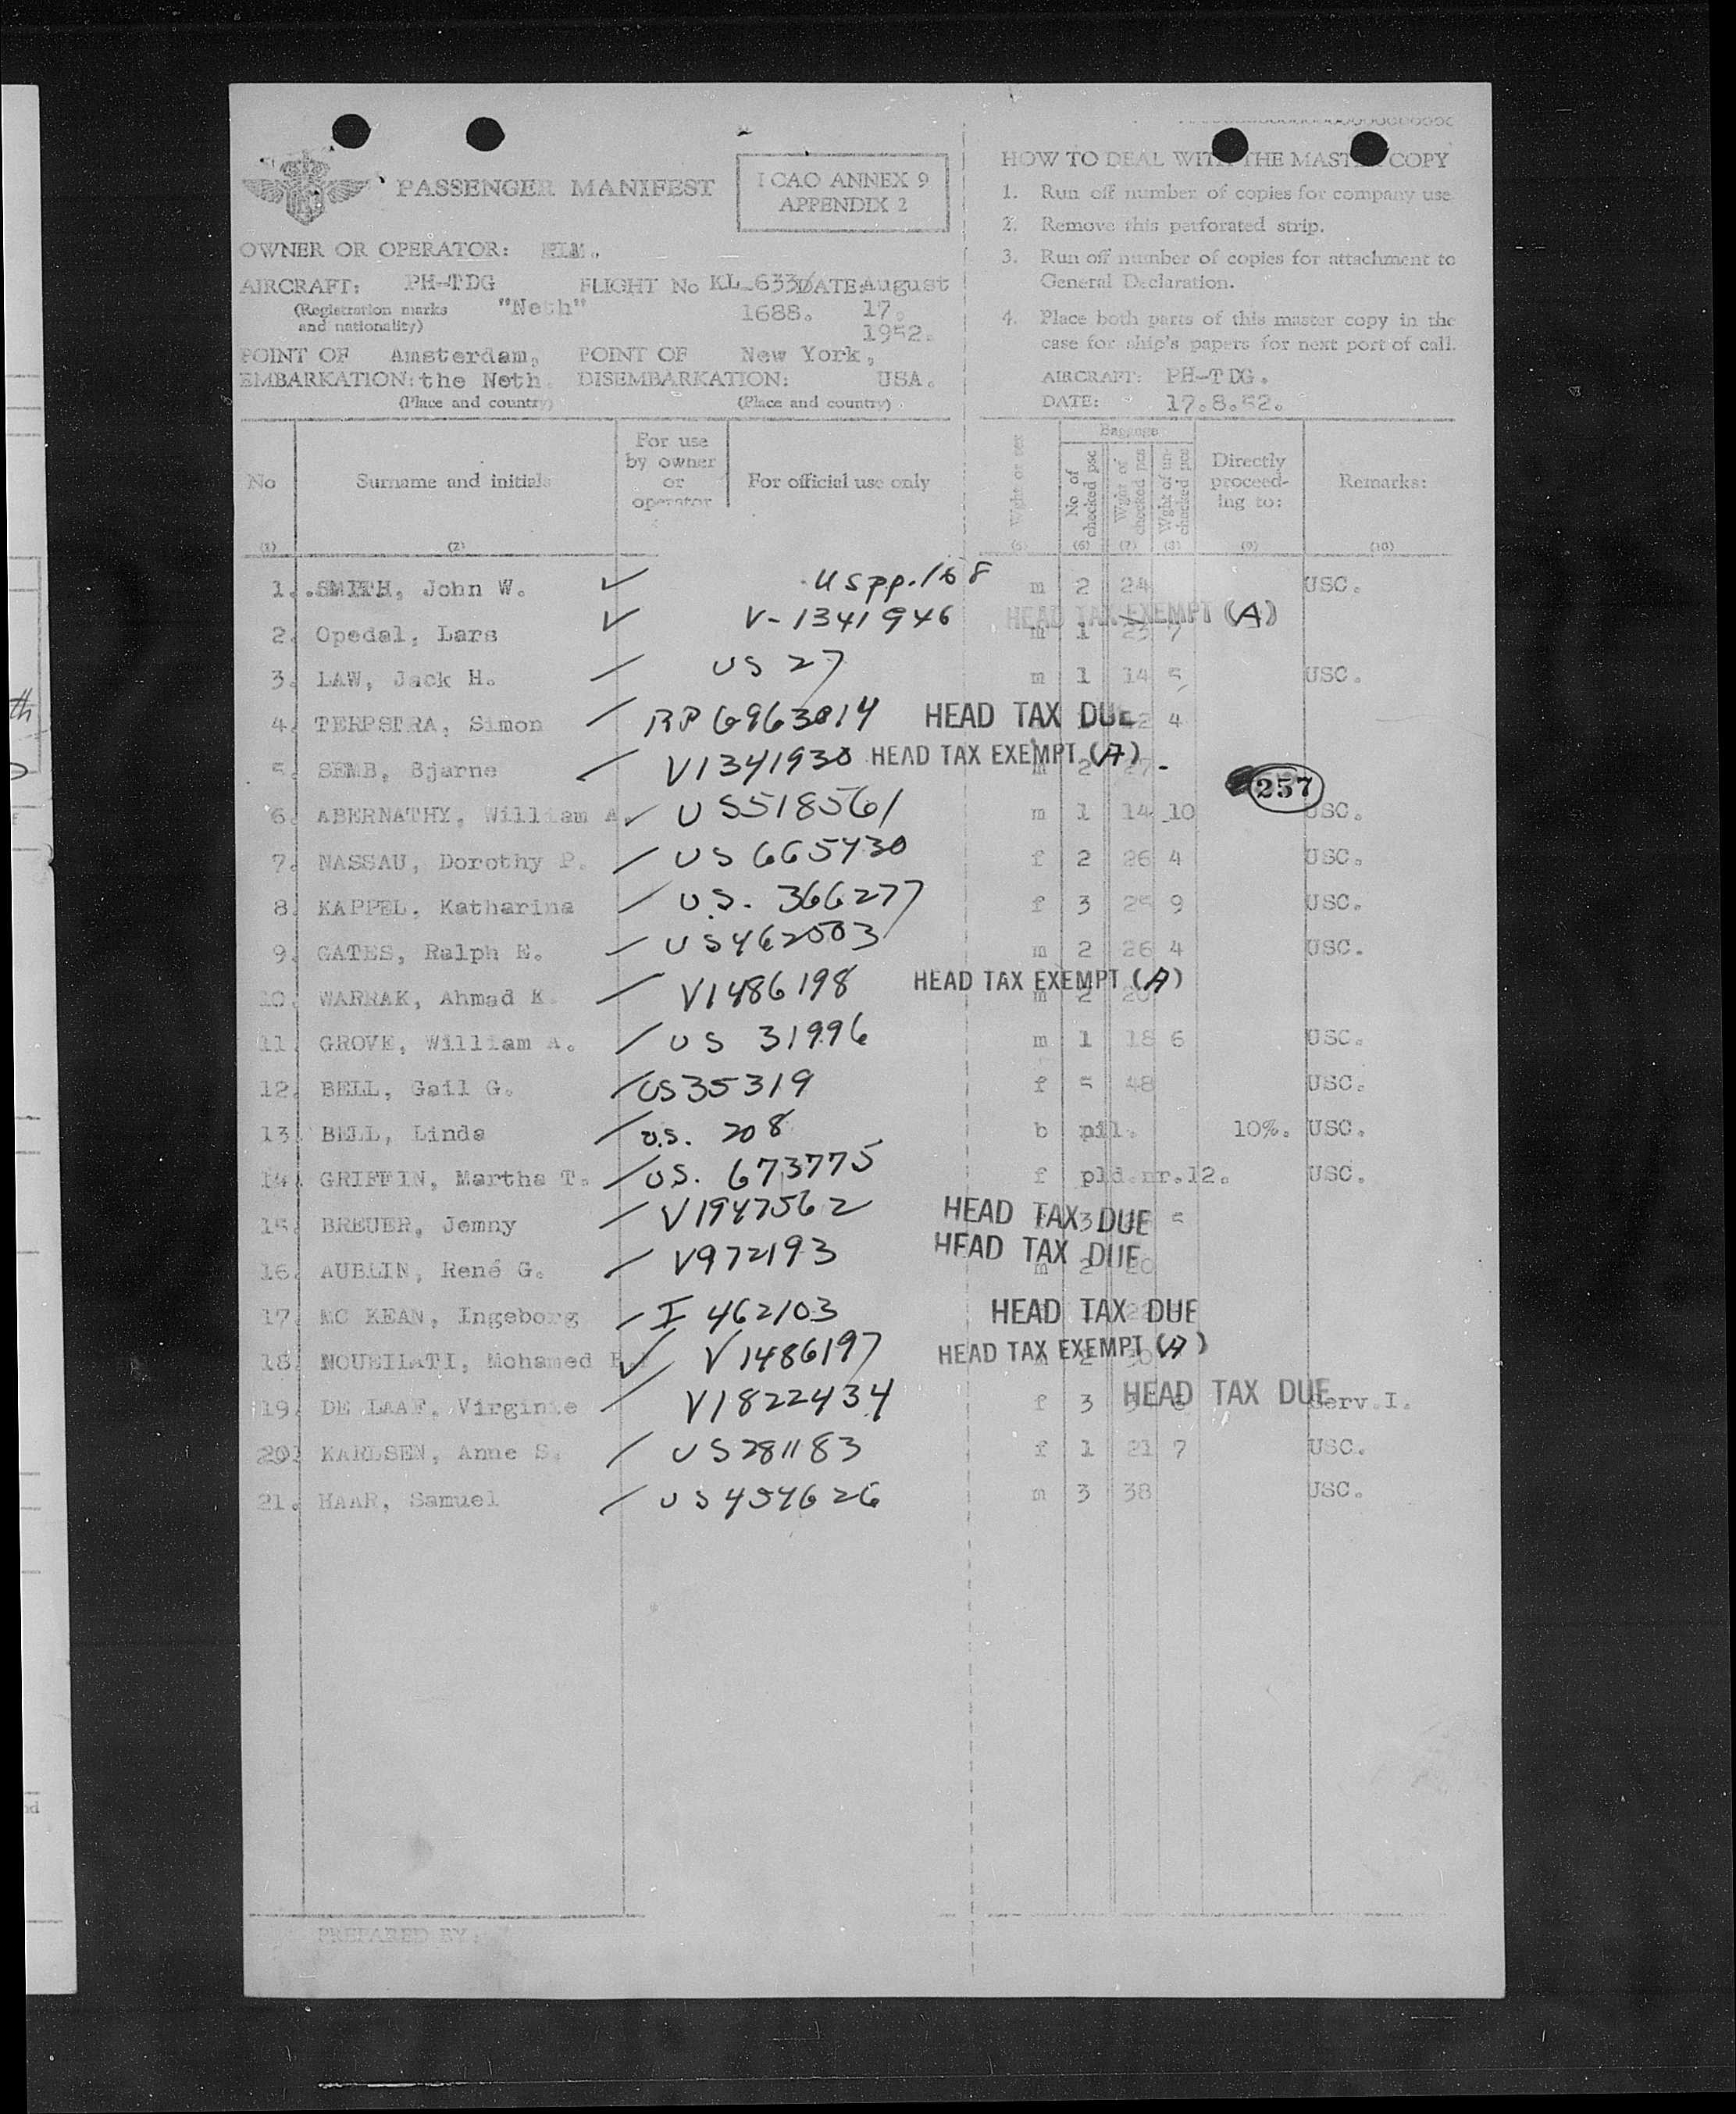 PASSENGER MANIFEST
I CAO ANNEX 9
APPENDIX 2
OWNER OR OPERATOR: KLM.
AIRCRAFT: PH-TDG FLIGHT No KL-633/ DATE: August
(Registration marks "Neth" 1688. 17.
and nationality) 1952.
POINT OF Amsterdam, POINT OF New York,
EMBARKATION: the Neth. DISEMBARKATION: USA.
(Place and country) (Place and country)
HOW TO DEAL WITH THE MASTER COPY
1. Run off number of copies for company use.
2. Remove this perforated strip.
3. Run off number of copies for attachment to
General Declaration.
4. Place both parts of this master copy in the
case for ship's papers for next port of call.
AIRCRAFT: PH-TDG.
DATE: 17.8.52.
No Surname and initials For use by owner or operator For official use only Wght or sex Baggage No of checked psc Wght of checked pcs Wght of un-checked pcs Directly proceed-ing to: Remarks:
(1) (2) (5) (6) (7) (8) (9) (10)
1. SMITH, John W. US pp. 168 m 2 24 USC.
2. Opedal, Lars V-1341946 HEAD TAX EXEMPT (A) m 1 23 7
3. LAW, Jack H. US 27 m 1 14 5 USC.
4. TERPSTRA, Simon RP G963014 HEAD TAX DUE 4
5. SEMB, Bjarne V1341930 HEAD TAX EXEMPT (A) m 2 27 -
257
6. ABERNATHY, William A. US518561 m 1 14 10 USC.
7. NASSAU, Dorothy P. US 665430 f 2 26 4 USC.
8. KAPPEL, Katharina U.S. 366277 f 3 25 9 USC.
9. GATES, Ralph E. US462503 m 2 26 4 USC.
10. WARRAK, Ahmad K. V1486198 HEAD TAX EXEMPT (A) m 2 20
11. GROVE, William A. US 31996 m 1 18 6 USC.
12. BELL, Gail G. US35319 f 5 48 USC.
13. BELL, Linda U.S. 208 b nil. 10%. USC.
14. GRIFFIN, Martha T. US. 673775 f pld.nr.12. USC.
15. BREUER, Jemny V1947562 HEAD TAX DUE 3 5
16. AUBLIN, René G. V972193 HEAD TAX DUE m 2 20
17. MC KEAN, Ingeborg I 462103 HEAD TAX DUE
18. NOUEILATI, Mohamed V1486197 HEAD TAX EXEMPT (A)
19. DE LAAF, Virginie V1822434 f 3 HEAD TAX DUE Serv.I.
20. KARLSEN, Anne S. US281183 f 1 21 7 USC.
21. HAAR, Samuel US454626 m 3 38 USC.
PREPARED BY: